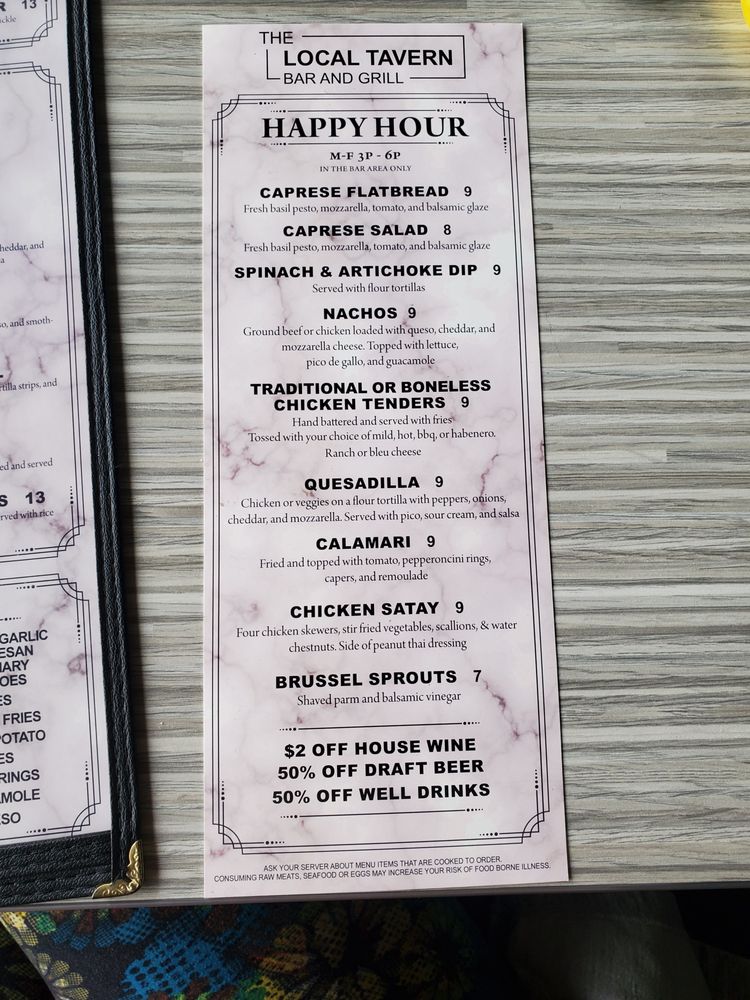 13
heddar, and
so, and smoth-
tilla strips, and
ed and served
S 13
rved with rice
GARLIC
ESAN
ARY
OES
ES
FRIES
POTATO
ES
RINGS
AMOLE
ESO
THE
LOCAL TAVERN
BAR AND GRILL
HAPPY HOUR
M-F 3P - 6P
IN THE BAR AREA ONLY
CAPRESE FLATBREAD 9
Fresh basil pesto, mozzarella, tomato, and balsamic glaze
CAPRESE SALAD 8
Fresh basil pesto, mozzarella, tomato, and balsamic glaze
SPINACH & ARTICHOKE DIP 9
Served with flour tortillas
NACHOS 9
Ground beef or chicken loaded with queso, cheddar, and
mozzarella cheese. Topped with lettuce,
pico de gallo, and guacamole
TRADITIONAL OR BONELESS
CHICKEN TENDERS 9
Hand battered and served with fries
Tossed with your choice of mild, hot, bbq, or habenero.
Ranch or bleu cheese
QUESADILLA 9
Chicken or veggies on a flour tortilla with peppers, onions,
cheddar, and mozzarella. Served with pico, sour cream, and salsa
CALAMARI 9
Fried and topped with tomato, pepperoncini rings,
capers, and remoulade
CHICKEN SATAY 9
Four chicken skewers, stir fried vegetables, scallions, & water
chestnuts. Side of peanut thai dressing
BRUSSEL SPROUTS 7
Shaved parm and balsamic vinegar
$2 OFF HOUSE WINE
50% OFF DRAFT BEER
50% OFF WELL DRINKS
ASK YOUR SERVER ABOUT MENU ITEMS THAT ARE COOKED TO ORDER.
CONSUMING RAW MEATS, SEAFOOD OR EGGS MAY INCREASE YOUR RISK OF FOOD BORNE ILLNESS.